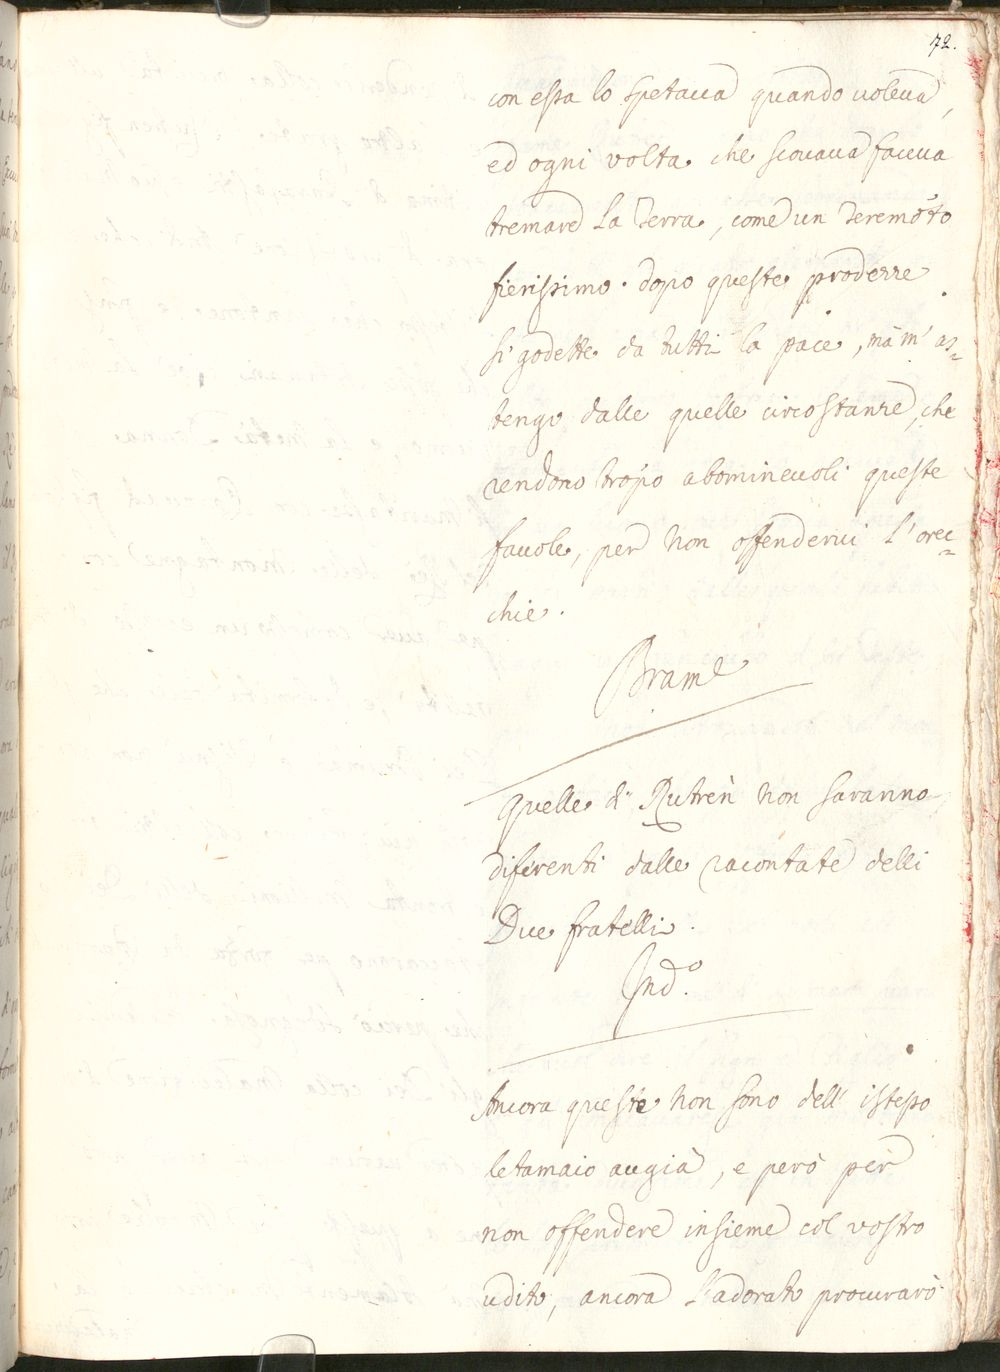 72.
con essa lo spetaua quando uoleua,
ed ogni volta che scouaua faceua
tremare la Terra, come un Teremòto
fierissimo. dopo queste proderze
si godette da tutti la pace, mà m' as=
tengo dalle quelle circostanze, che
rendono tropo abomineuoli queste
fauole, per non offenderui l' orec=
chie.
Brame
Quelle di Rutren non saranno
diferenti dalle racontate delli
Due fratelli.
Ind.o
Ancora queste non sono dell' istesso
letamaio augia, e però per
non offendere insieme col vostro
udito, ancora l'adorato procurarò